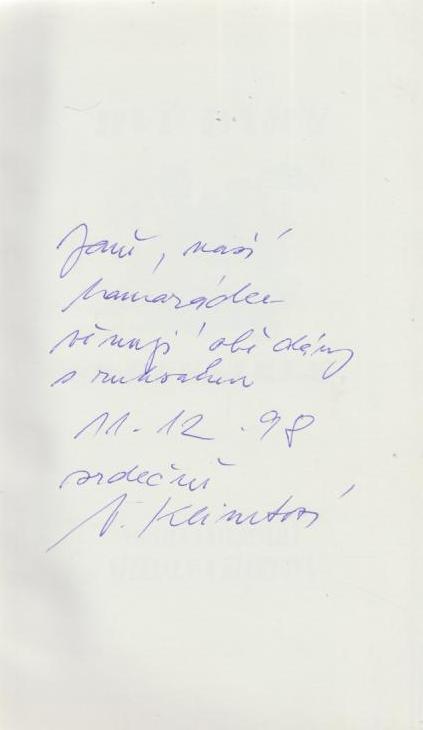 Janě, naší
kamarádce
věnují obě dámy
s rukávem
11.12.98
srdečně
Klimtová